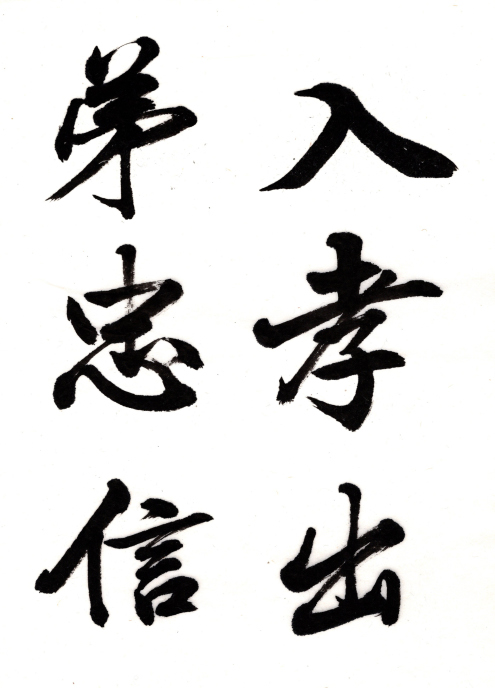 入孝出
弟忠信